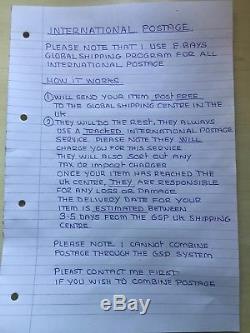 INTERNATIONAL POSTAGE
PLEASE NOTE THAT I USE E.BAYS
GLOBAL SHIPPING PROGRAM FOR ALL
INTERNATIONAL POSTAGE
HOW IT WORKS
① I WILL SEND YOUR ITEM POST FREE
TO THE GLOBAL SHIPPING CENTRE IN THE
UK
② THEY WILL DO THE REST, THEY ALWAYS
USE A TRACKED INTERNATIONAL POSTAGE
SERVICE. PLEASE NOTE THEY WILL
CHARGE YOU FOR THIS SERVICE
THEY WILL ALSO SORT OUT ANY
TAX OR IMPORT CHARGES
ONCE YOUR ITEM HAS REACHED THE
UK CENTRE, THEY ARE RESPONSIBLE
FOR ANY LOSS OR DAMAGE
THE DELIVERY DATE FOR YOUR
ITEM IS ESTIMATED BETWEEN
3-5 DAYS FROM THE GSP UK SHIPPING
CENTRE.
PLEASE NOTE I CANNOT COMBINE
POSTAGE THROUGH THE GSP SYSTEM
PLEASE CONTACT ME FIRST
IF YOU WISH TO COMBINE POSTAGE